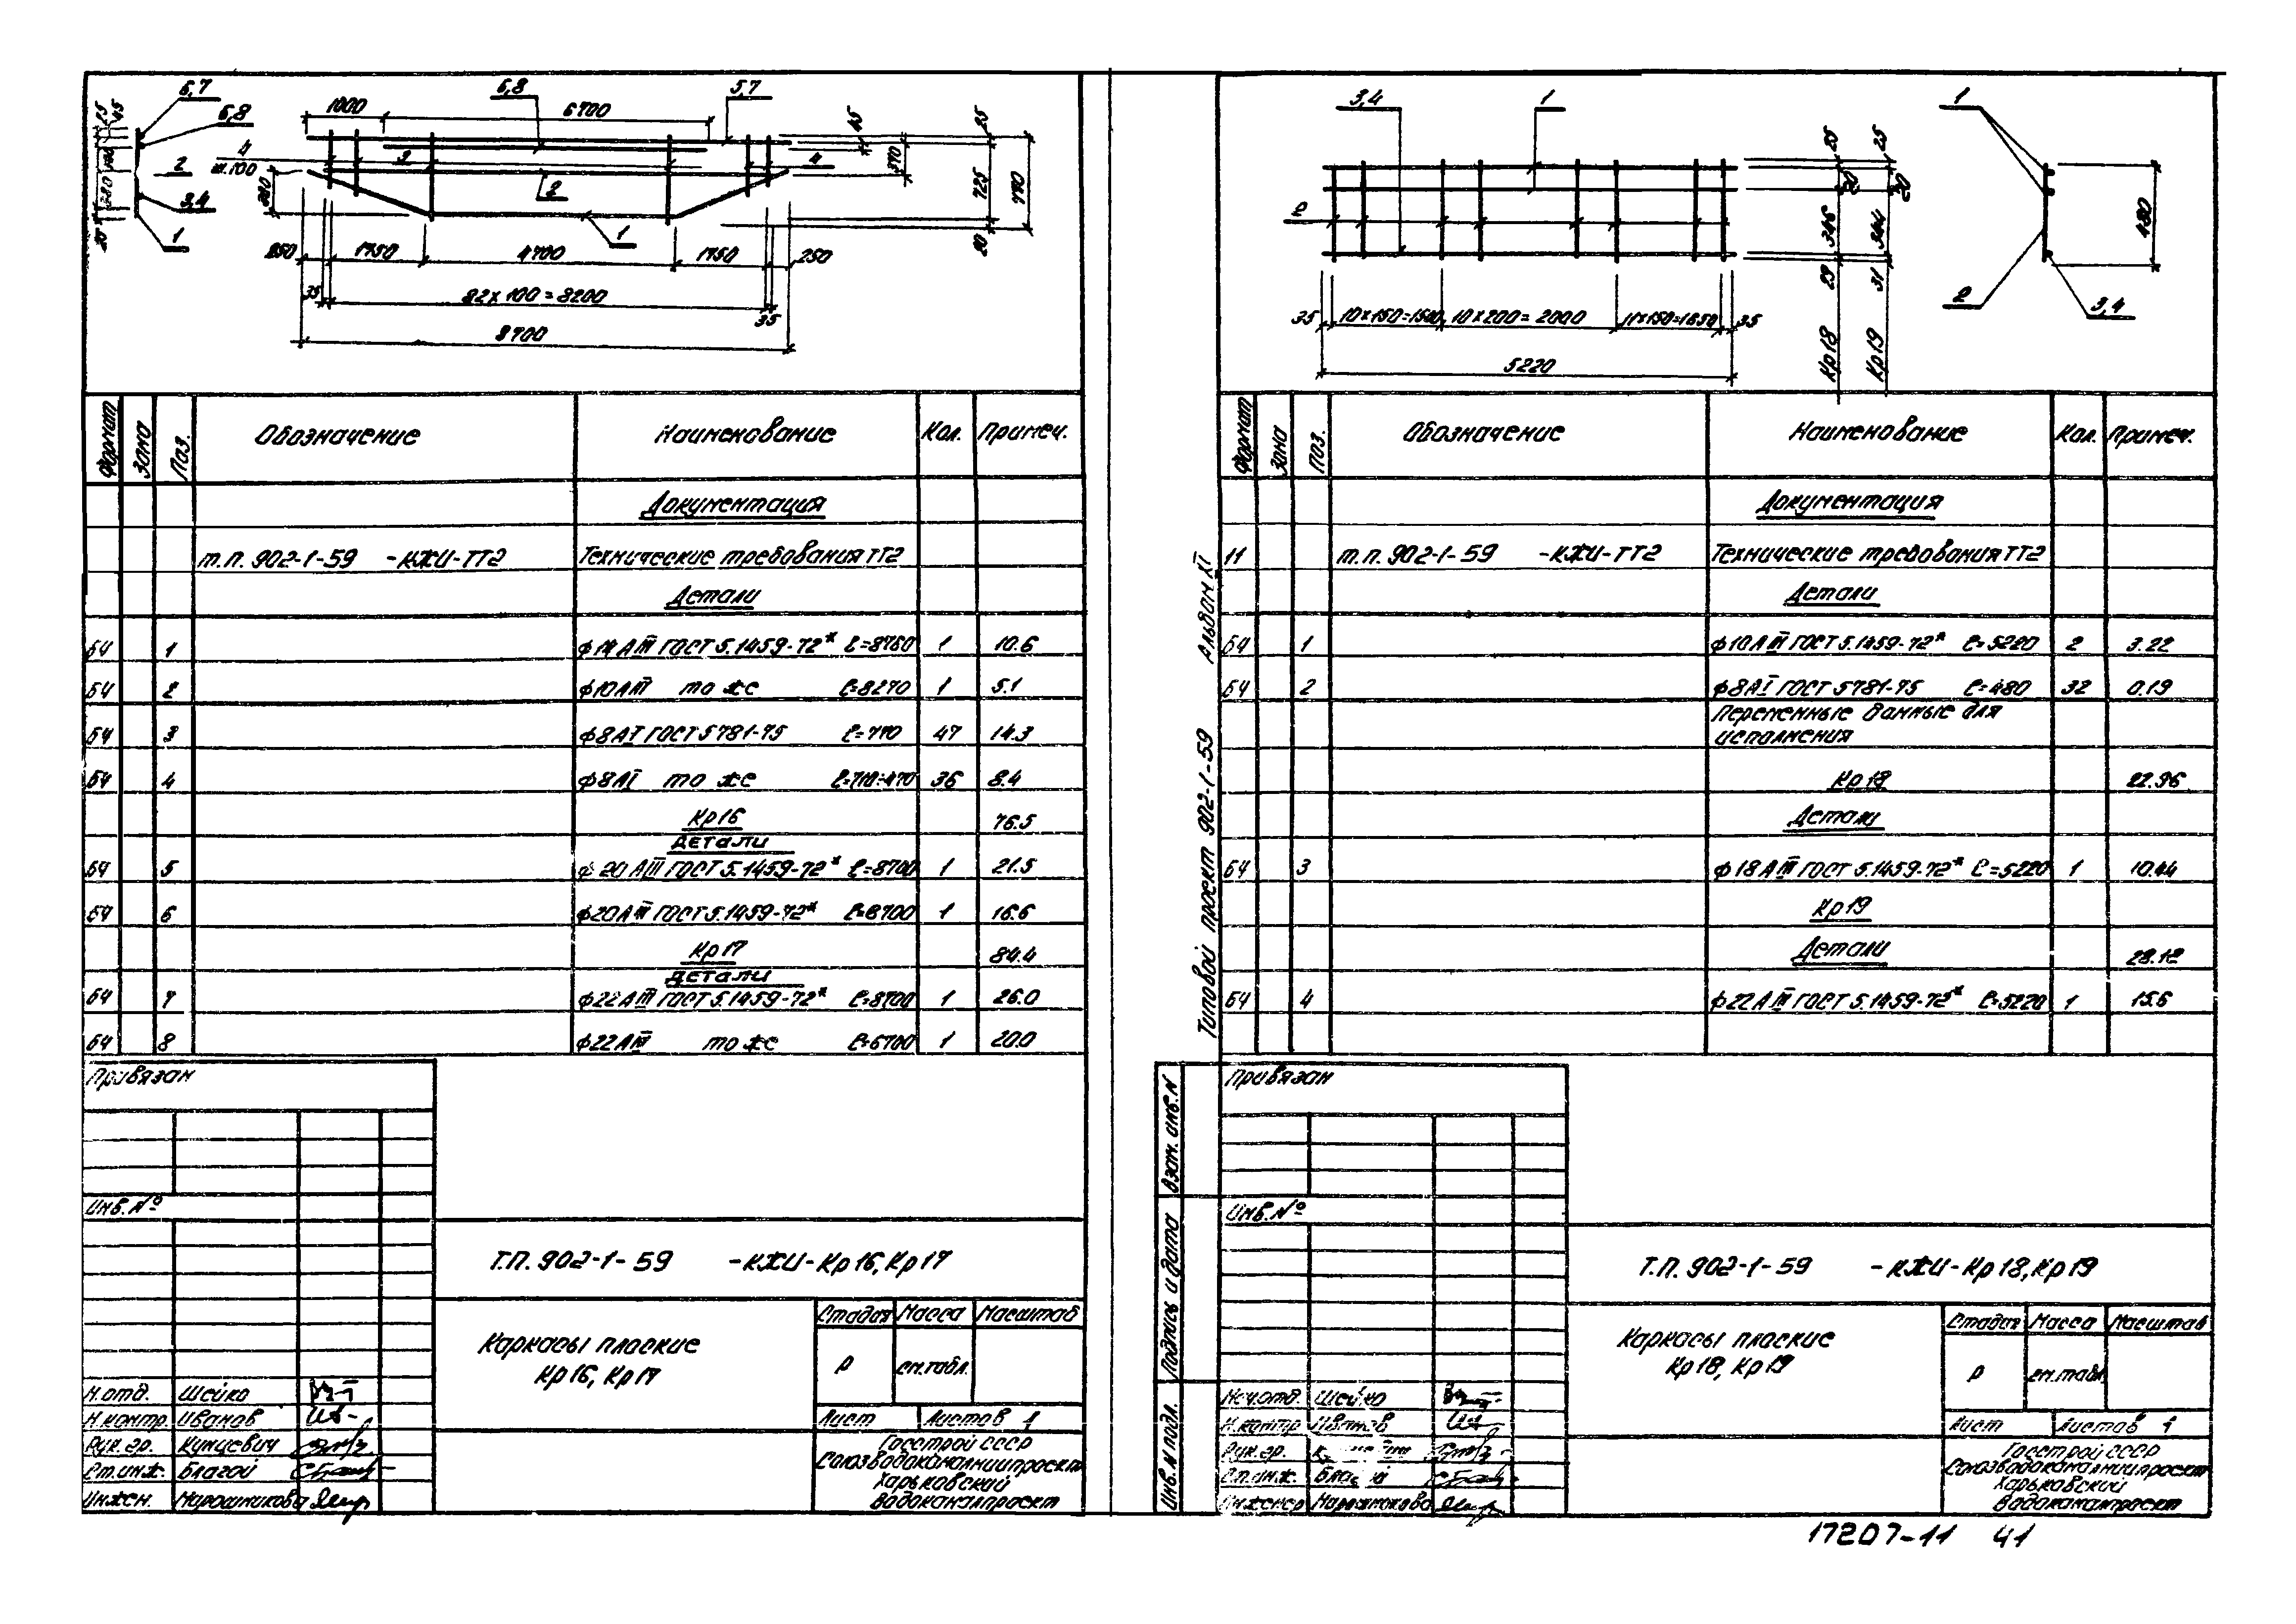 6,7
6,8
2
3,4
1
25
45
20
6,8
5,7
1000
6700
4
ш.100
3
4
2
1
45
25
370
725
770
20
280
250
1750
4700
1750
250
35
82×100=8200
35
8700
Формат
Зона
Поз.
Обозначение
Наименование
Кол.
Примеч.
Документация
т.п. 902-1-59 -КЖИ-ТТ2 Технические требования ТТ2
Детали
БЧ 1 ф14АIII ГОСТ 5.1459-72* ℓ=8760 1 10.6
БЧ 2 ф10АIII то же ℓ=8270 1 5.1
БЧ 3 ф8АI ГОСТ 5781-75 ℓ=770 47 14.3
БЧ 4 ф8АI то же ℓ=710÷470 36 8.4
Кр16 76.5
Детали
БЧ 5 ф20АIII ГОСТ 5.1459-72* ℓ=8700 1 21.5
БЧ 6 ф20АIII ГОСТ 5.1459-72* ℓ=6700 1 16.6
Кр17 84.4
Детали
БЧ 7 ф22АIII ГОСТ 5.1459-72* ℓ=8700 1 26.0
БЧ 8 ф22АIII то же ℓ=6700 1 20.0
Привязан
Инв.№
Т.П. 902-1-59 -КЖИ-Кр16, Кр17
Каркасы плоские
Кр16, Кр17
Стадия Масса Масштаб
Р см.табл.
Лист Листов 1
Госстрой СССР
Союзводоканалниипроект
Харьковский
Водоканалпроект
Н.отд. Шейко
Н.контр Иванов
Рук.гр. Кунцевич
Ст.инж. Благой
Инжен. Марошникова
3,4
1
2
35
10×150=1500
10×200=2000
11×150=1650
35
5220
25
90
346
29
Кр18
25
90
344
31
Кр19
1
2
3,4
480
Альбом XI
Типовой проект 902-1-59
Формат
Зона
Поз.
Обозначение
Наименование
Кол.
Примеч.
Документация
11 т.п. 902-1-59 -КЖИ-ТТ2 Технические требования ТТ2
Детали
БЧ 1 ф10АIII ГОСТ 5.1459-72* ℓ=5220 2 3.22
БЧ 2 ф8АI ГОСТ 5781-75 ℓ=480 32 0.19
Переменные данные для
исполнения
Кр18 22.96
Детали
БЧ 3 ф18АIII ГОСТ 5.1459-72* ℓ=5220 1 10.44
Кр19
Детали 28.12
БЧ 4 ф22АIII ГОСТ 5.1459-72* ℓ=5220 1 15.6
Взам. инв.N
Подпись и дата
Инв.N подл.
Привязан
Инв.№
Т.П. 902-1-59 -КЖИ-Кр18, Кр19
Каркасы плоские
Кр18, Кр19
Стадия Масса Масштаб
Р см.табл.
Лист Листов 1
Госстрой СССР
Союзводоканалниипроект
Харьковский
Водоканалпроект
Нач.отд. Шейко
Н.контр Иванов
Рук.гр.
Ст.инж.
Инженер Марошникова
17207-11 41